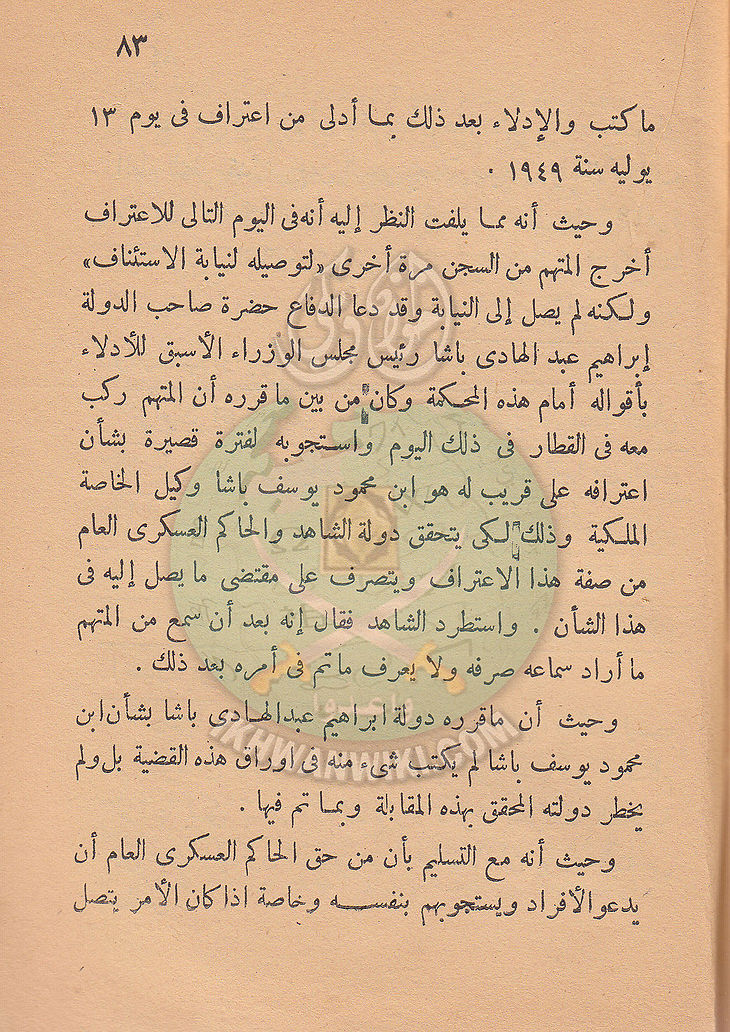 ٨٣
ما كتب والإدلاء بعد ذلك بما أدلى من اعتراف فى يوم ١٣
يوليه سنة ١٩٤٩ .
وحيث أنه مما يلفت النظر إليه أنه فى اليوم التالى للاعتراف
أخرج المتهم من السجن مرة أخرى «لتوصيله لنيابة الاستئناف»
ولكنه لم يصل إلى النيابة وقد دعا الدفاع حضرة صاحب الدولة
إبراهيم عبد الهادى باشا رئيس مجلس الوزراء الأسبق للأدلاء
بأقواله أمام هذه المحكمة وكان من بين ما قرره أن المتهم ركب
معه فى القطار فى ذلك اليوم واستجوبه لفترة قصيرة بشأن
اعترافه على قريب له هو ابن محمود يوسف باشا وكيل الخاصة
الملكية وذلك لكى يتحقق دولة الشاهد والحاكم العسكرى العام
من صفة هذا الاعتراف ويتصرف على مقتضى ما يصل إليه فى
هذا الشأن . واستطرد الشاهد فقال إنه بعد أن سمع من المتهم
ما أراد سماعه صرفه ولا يعرف ما تم فى أمره بعد ذلك .
وحيث أن ماقرره دولة ابراهيم عبدالهادى باشا بشأن ابن
محمود يوسف باشا لم يكتب شىء منه فى اوراق هذه القضية بل ولم
يخطر دولته المحقق بهذه المقابلة وبما تم فيها .
وحيث أنه مع التسليم بأن من حق الحاكم العسكرى العام أن
يدعو الأفراد ويستجوبهم بنفسه وخاصة اذا كان الأمر يتصل
IKHWANWIKI.COM
وأعدوا